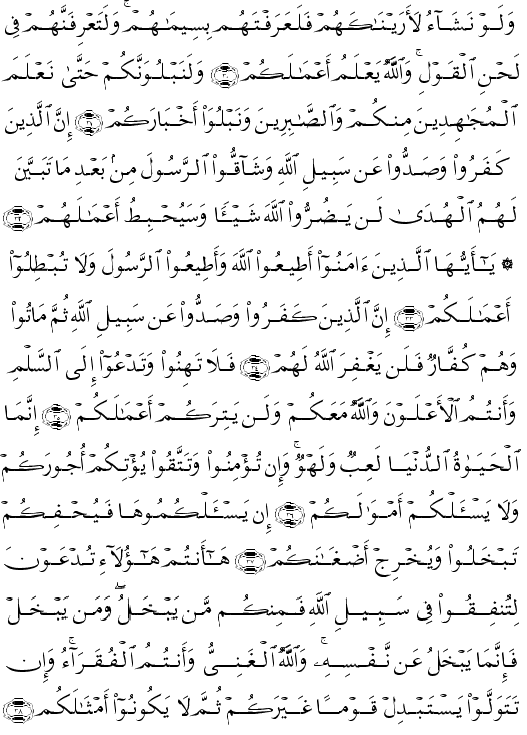 وَلَوْ نَشَآءُ لَأَرَيْنَٰكَهُمْ فَلَعَرَفْتَهُم بِسِيمَٰهُمْ ۚ وَلَتَعْرِفَنَّهُمْ فِى
لَحْنِ ٱلْقَوْلِ ۚ وَٱللَّهُ يَعْلَمُ أَعْمَٰلَكُمْ ﴿٣٠﴾ وَلَنَبْلُوَنَّكُمْ حَتَّىٰ نَعْلَمَ
ٱلْمُجَٰهِدِينَ مِنكُمْ وَٱلصَّٰبِرِينَ وَنَبْلُوَا۟ أَخْبَارَكُمْ ﴿٣١﴾ إِنَّ ٱلَّذِينَ
كَفَرُوا۟ وَصَدُّوا۟ عَن سَبِيلِ ٱللَّهِ وَشَآقُّوا۟ ٱلرَّسُولَ مِنۢ بَعْدِ مَا تَبَيَّنَ
لَهُمُ ٱلْهُدَىٰ لَن يَضُرُّوا۟ ٱللَّهَ شَيْـًٔا وَسَيُحْبِطُ أَعْمَٰلَهُمْ ﴿٣٢﴾
۞ يَٰٓأَيُّهَا ٱلَّذِينَ ءَامَنُوٓا۟ أَطِيعُوا۟ ٱللَّهَ وَأَطِيعُوا۟ ٱلرَّسُولَ وَلَا تُبْطِلُوٓا۟
أَعْمَٰلَكُمْ ﴿٣٣﴾ إِنَّ ٱلَّذِينَ كَفَرُوا۟ وَصَدُّوا۟ عَن سَبِيلِ ٱللَّهِ ثُمَّ مَاتُوا۟
وَهُمْ كُفَّارٌ فَلَن يَغْفِرَ ٱللَّهُ لَهُمْ ﴿٣٤﴾ فَلَا تَهِنُوا۟ وَتَدْعُوٓا۟ إِلَى ٱلسَّلْمِ
وَأَنتُمُ ٱلْأَعْلَوْنَ وَٱللَّهُ مَعَكُمْ وَلَن يَتِرَكُمْ أَعْمَٰلَكُمْ ﴿٣٥﴾ إِنَّمَا
ٱلْحَيَوٰةُ ٱلدُّنْيَا لَعِبٌ وَلَهْوٌ ۚ وَإِن تُؤْمِنُوا۟ وَتَتَّقُوا۟ يُؤْتِكُمْ أُجُورَكُمْ
وَلَا يَسْـَٔلْكُمْ أَمْوَٰلَكُمْ ﴿٣٦﴾ إِن يَسْـَٔلْكُمُوهَا فَيُحْفِكُمْ
تَبْخَلُوا۟ وَيُخْرِجْ أَضْغَٰنَكُمْ ﴿٣٧﴾ هَٰٓأَنتُمْ هَٰٓؤُلَآءِ تُدْعَوْنَ
لِتُنفِقُوا۟ فِى سَبِيلِ ٱللَّهِ فَمِنكُم مَّن يَبْخَلُ ۖ وَمَن يَبْخَلْ
فَإِنَّمَا يَبْخَلُ عَن نَّفْسِهِۦ ۚ وَٱللَّهُ ٱلْغَنِىُّ وَأَنتُمُ ٱلْفُقَرَآءُ ۚ وَإِن
تَتَوَلَّوْا۟ يَسْتَبْدِلْ قَوْمًا غَيْرَكُمْ ثُمَّ لَا يَكُونُوٓا۟ أَمْثَٰلَكُم ﴿٣٨﴾